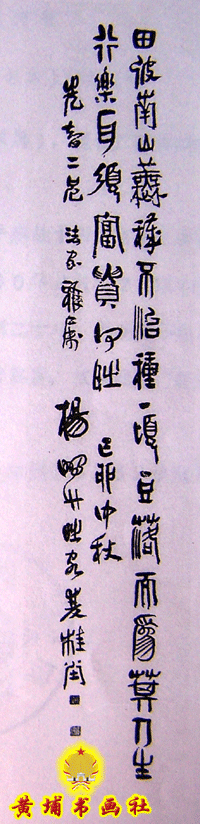 田彼南山蕪穢不治種一頃豆落而為萁人生
行樂耳須富貴何時 己卯中秋
二兄 法家雅屬 楊
黄埔书画社